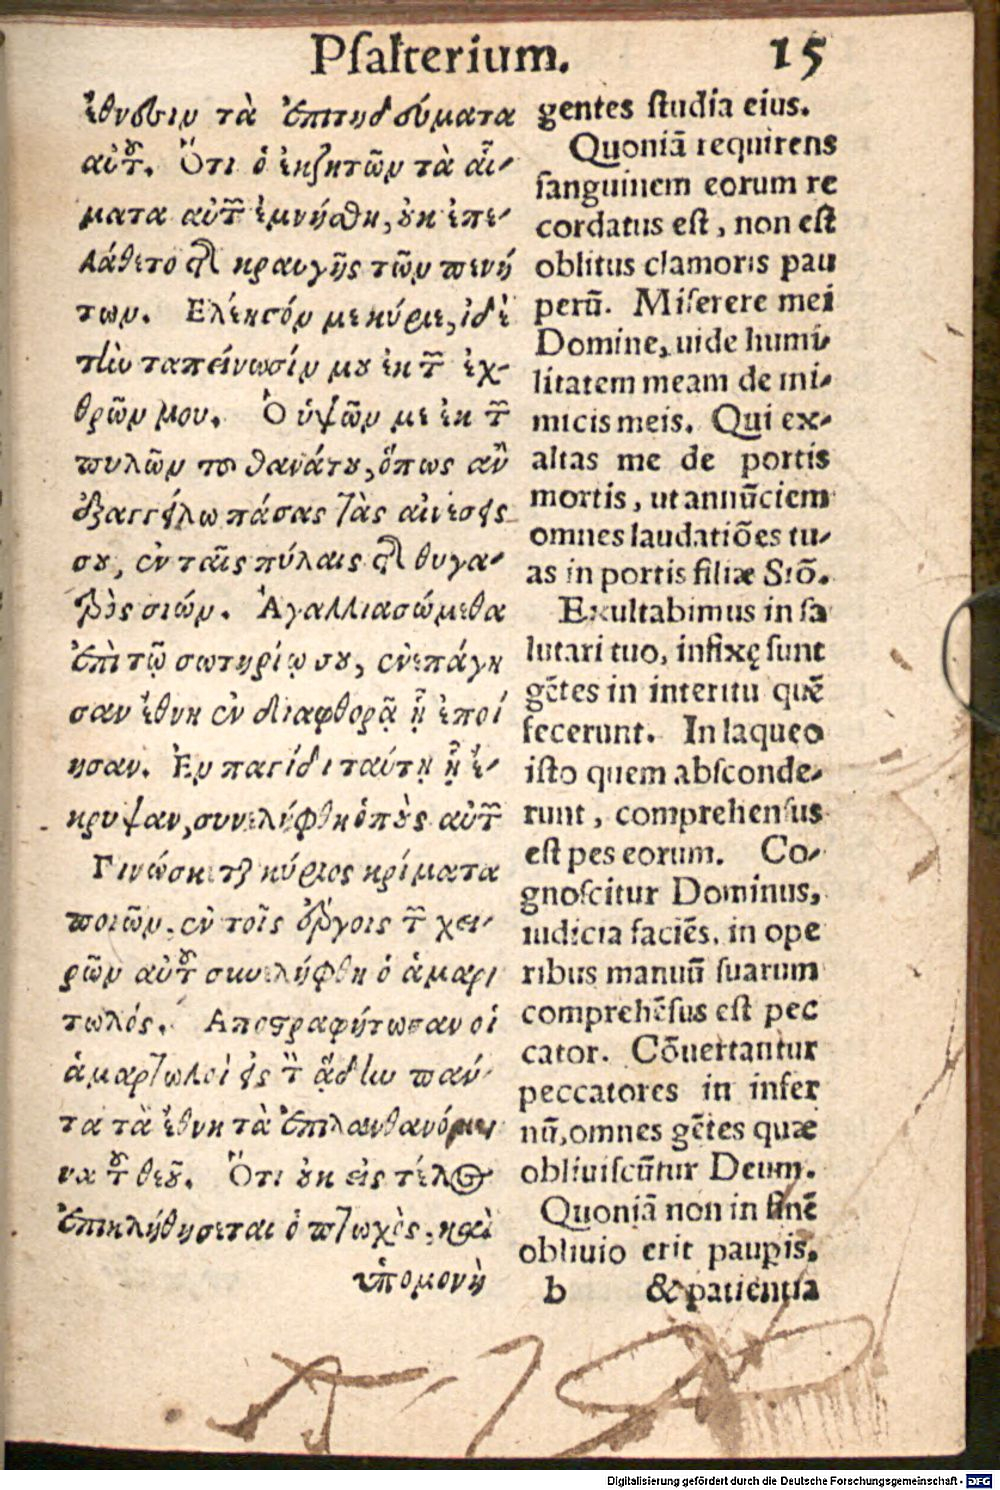 Psalterium. 15
ἔθνεσιν τὰ ἐπιτηδεύματα
αὐτοῦ. Ὅτι ὁ ἐκζητῶν τὰ αἵ-
ματα αὐτῶν ἐμνήσθη, οὐκ ἐπε-
λάθετο τῆς κραυγῆς τῶν πενή
των. Ἐλέησόν με κύριε, ἰδὲ
τὴν ταπείνωσίν μου ἐκ τῶν ἐχ-
θρῶν μου. Ὁ ὑψῶν με ἐκ τῶν
πυλῶν τοῦ θανάτου, ὅπως ἂν
ἐξαγγείλω πάσας τὰς αἰνέσεις
σου, ἐν ταῖς πύλαις τῆς θυγα-
τρὸς σιών. Ἀγαλλιασώμεθα
ἐπὶ τῷ σωτηρίῳ σου, ἐνεπάγη
σαν ἔθνη ἐν διαφθορᾷ ᾗ ἐποί
ησαν. Ἐν παγίδι ταύτῃ ᾗ ἔ-
κρυψαν, συνελήφθη ὁ ποὺς αὐτῶν
Γινώσκεται κύριος κρίματα
ποιῶν, ἐν τοῖς ἔργοις τῶν χει-
ρῶν αὐτοῦ συνελήφθη ὁ ἁμαρ
τωλός. Ἀποστραφήτωσαν οἱ
ἁμαρτωλοὶ εἰς τὸν ᾅδην πάν-
τα τὰ ἔθνη τὰ ἐπιλανθανόμε
να τοῦ θεοῦ. Ὅτι οὐκ εἰς τέλος
ἐπικλήθησεται ὁ πτωχὸς, καὶ
ὑπομονὴ
gentes studia eius.
Quoniã requirens
sanguinem eorum re
cordatus est, non est
oblitus clamoris pau
perũ. Miserere mei
Domine, uide humi-
litatem meam de ini-
micis meis. Qui ex-
altas me de portis
mortis, ut annũciem
omnes laudatiões tu-
as in portis filiæ Siõ.
Exultabimus in sa
lutari tuo, infixę sunt
gẽtes in interitu quẽ
fecerunt. In laqueo
isto quem absconde-
runt, comprehensus
est pes eorum. Co-
gnoscitur Dominus,
iudicia faciẽs, in ope
ribus manuũ suarum
comprehẽsus est pec
cator. Cõuertantur
peccatores in infer
nũ, omnes gẽtes quæ
obliuiscũtur Deum.
Quoniã non in finẽ
obliuio erit paupis.
b & patientia
Digitalisierung gefördert durch die Deutsche Forschungsgemeinschaft - DFG